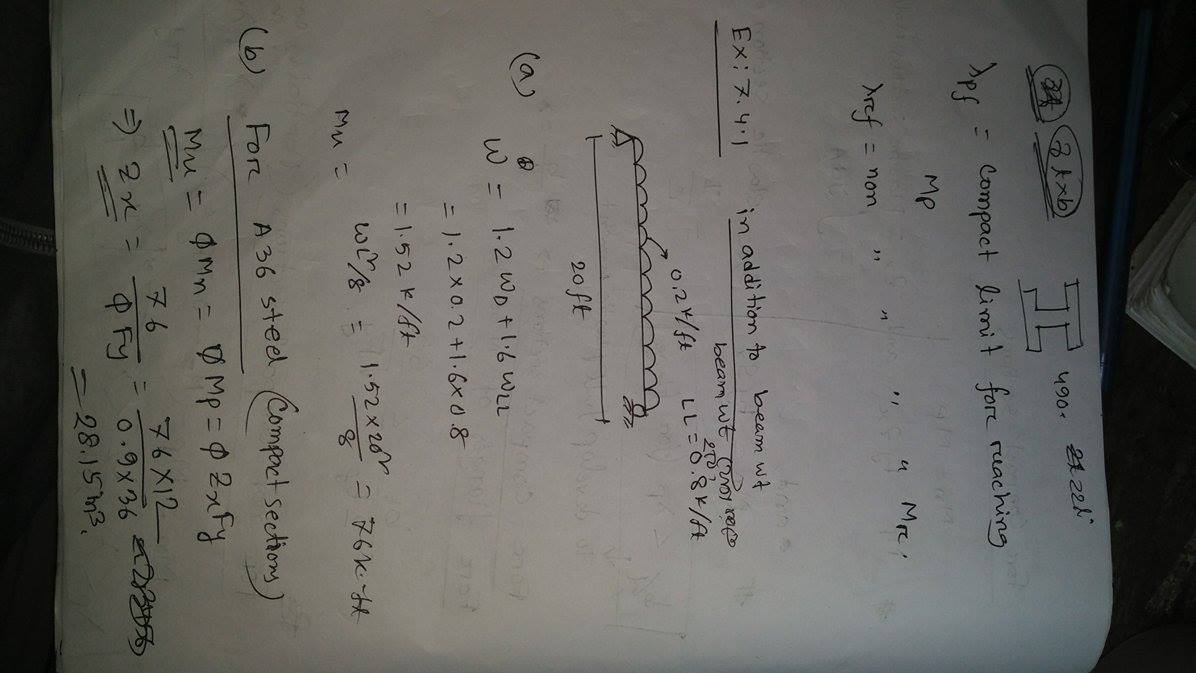 λpf = compact limit forc reaching
Mp
λrcf = non " " " " Mrc,
Ex: 7.4.1 in addition to beam wt
beam wt
0.2 k/ft LL = 0.8 k/ft
20 ft
(a) W = 1.2 WD + 1.6 WLL
= 1.2 × 0.2 + 1.6 × 0.8
= 1.52 k/ft
Mu = wl²/8 = 1.52 × 20²/8 = 76 k.-ft
(b) Forc A36 steel (compact sections)
Mu = φ Mn = φ Mp = φ Zx Fy
⇒ Zx = 76/φ Fy = 76 × 12/0.9 × 36
= 28.15 in³.